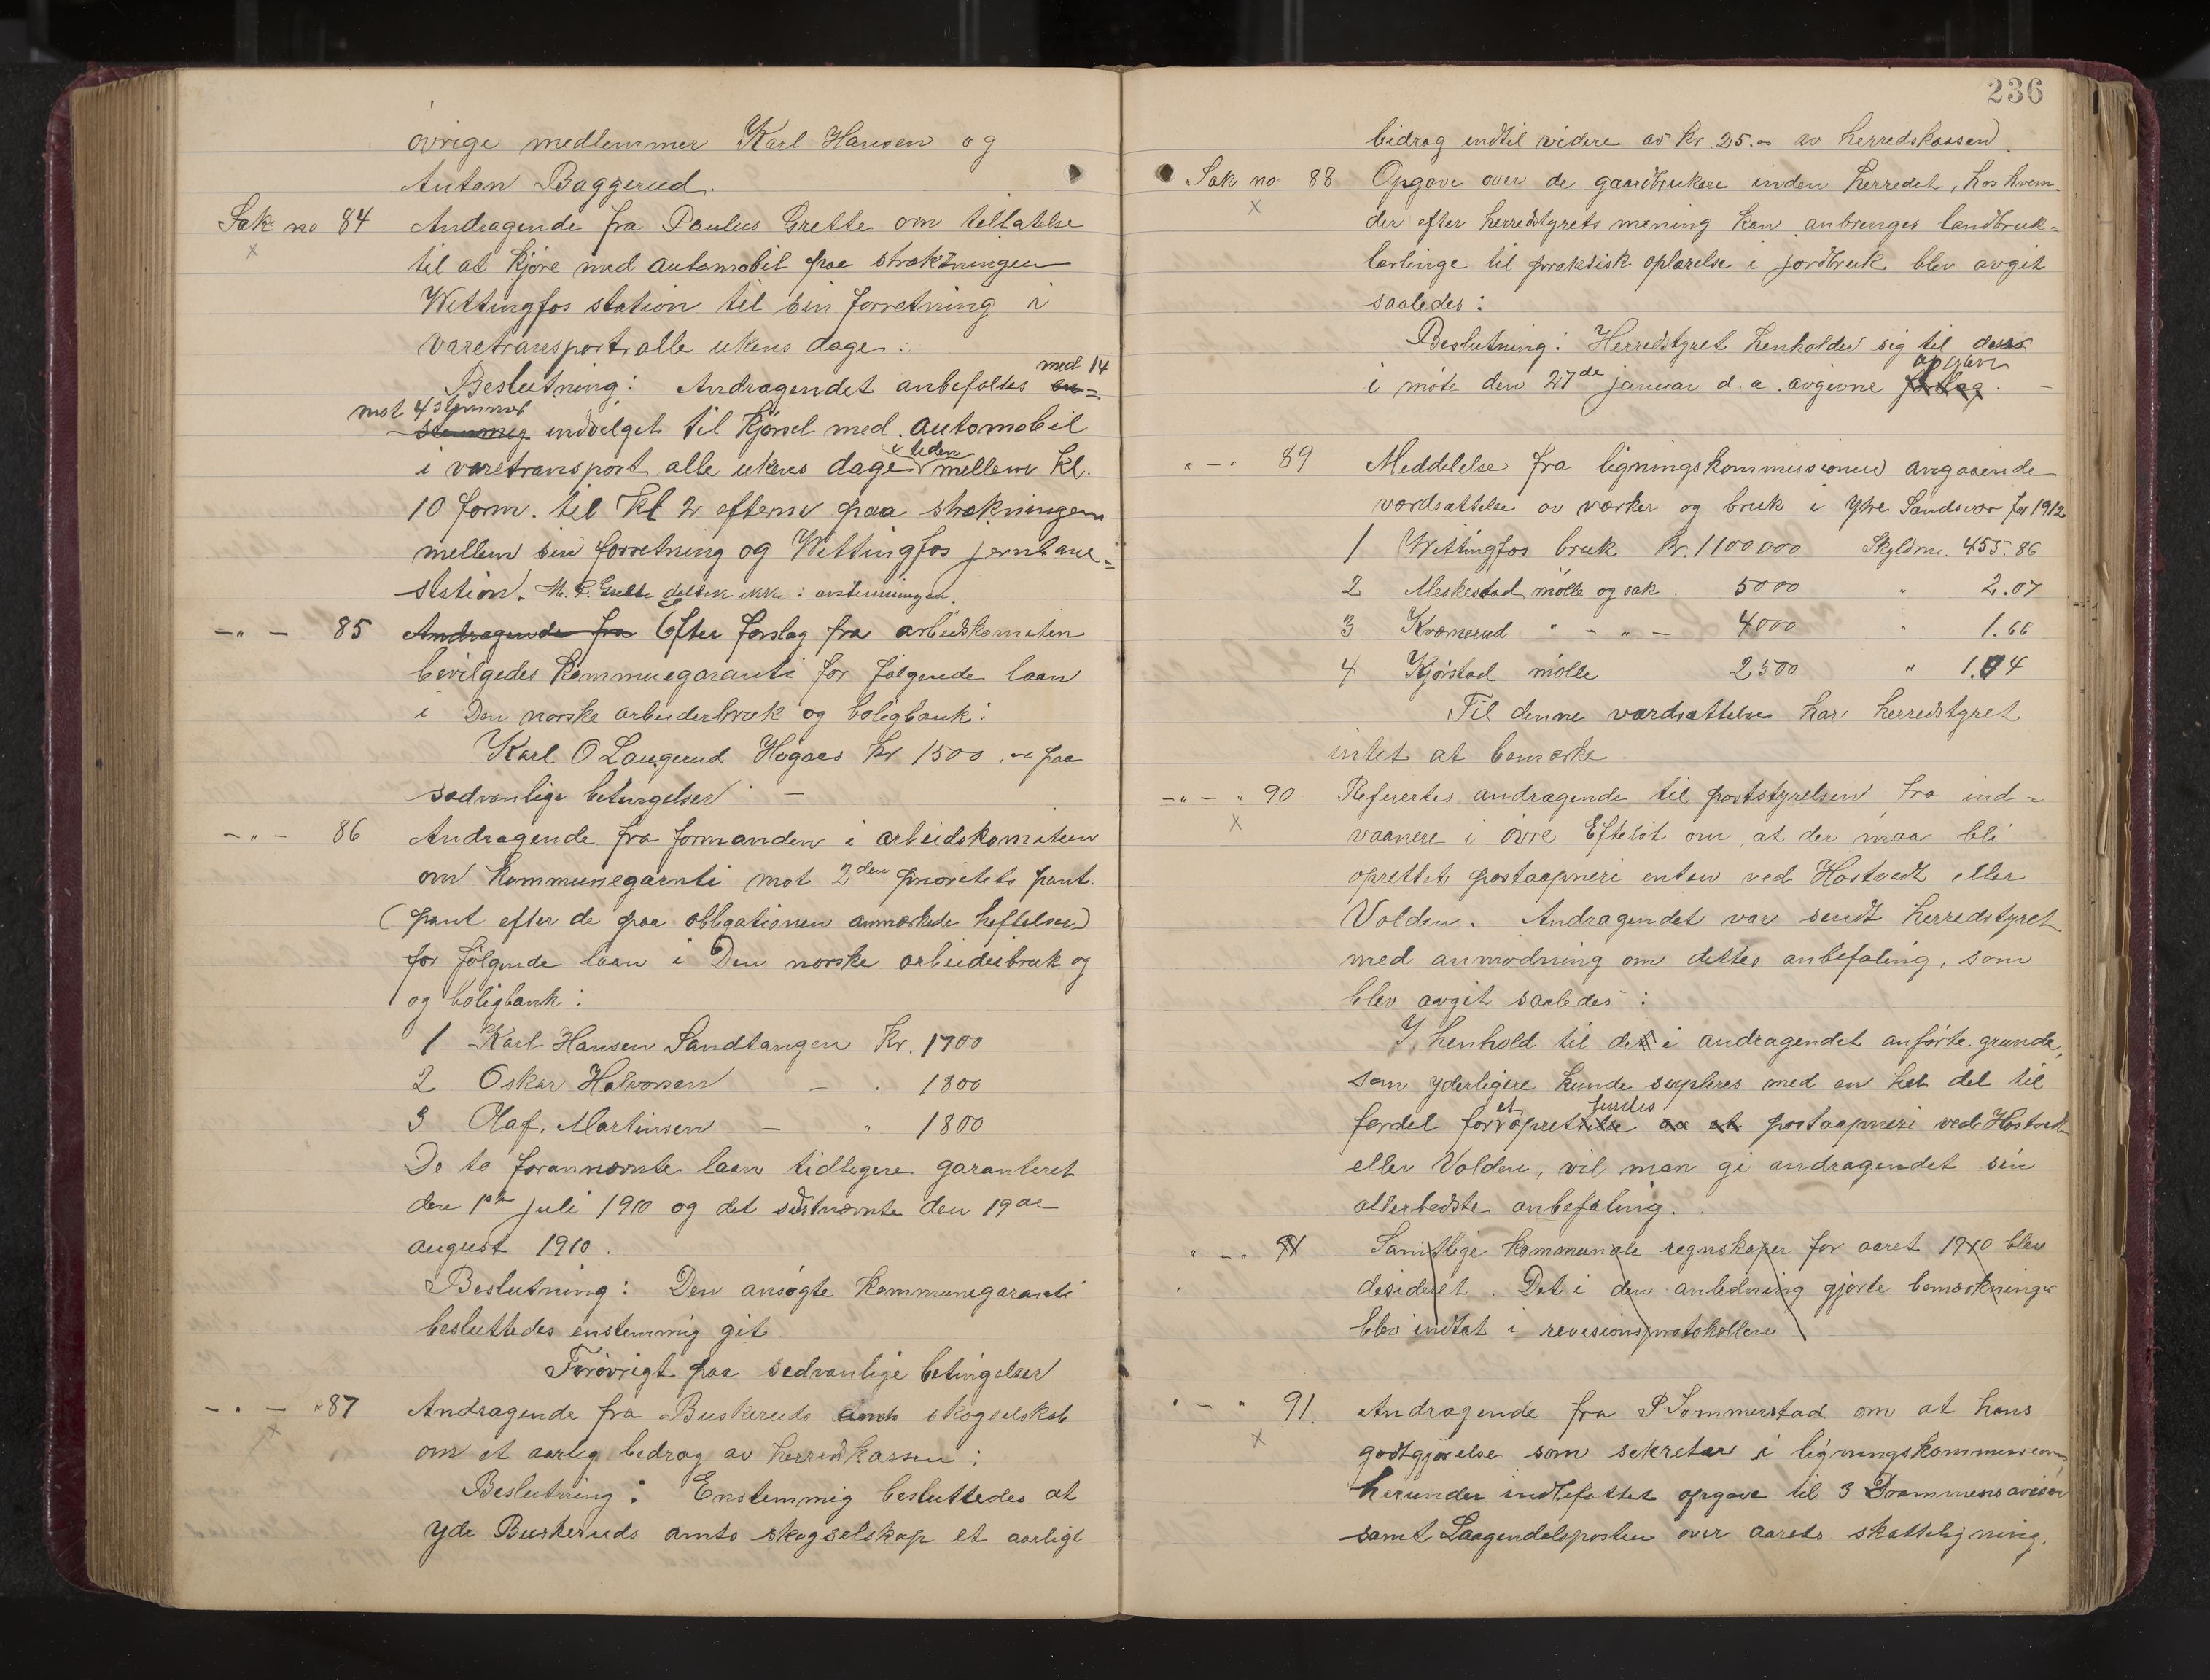 övrige medlemmer Karl Hansen og
Anton Baggerud.
Sak no 84 Andragende fra Paulus Grette om tillatelse
x
til at kjøre med automobil paa strækningen
Wittingfos station til sin forretning i
varetransport alle ukens dage.
Beslutning: Andragendet anbefaltes med 14
mot 4 stemmer indvilget til kjørsel med automobil
i varetransport alle ukens dage i tiden mellem kl.
10 form. til kl 2 efterm paa strækningen
mellem sin forretning og Wittingfos jernbane=
station. M. P. Grette deltok ikke i avstemningen.
-„- 85 Andragende fra Efter forslag fra arbeidskomiteen
bevilgedes kommunegaranti for følgende laan
i Den norske arbeiderbruk og boligbank:
Karl O Laugerud Høgaas kr 1500.- paa
sedvanlige betingelser -
-„- 86 Andragende fra formanden i arbeidskomiteen
om kommunegarnti mot 2den prioritets pant.
(pant efter de paa obligationen anmerkede heftelser)
for følgende laan i Den norske arbeiderbruk og
og boligbank:
1 Karl Hansen Sandtangen Kr. 1700
2 Oskar Halvorsen - . 1800
3 Olaf. Martinsen - „ 1800
De to forannævnte laan tidligere garanteret
den 1ste juli 1910 og det sistnævnte den 19de
august 1910.
Beslutning: Den ansøgte kommunegaranti
besluttedes enstemmig git
Forøvrigt paa sedvanlige betingelser
-„- „87 Andragende fra Buskeruds amts skogselskab
x
om et aarlig bedrag av herredskassen:
Beslutning: Enstemmig besluttedes at
yde Buskeruds amts skogselskap et aarligt
236
bidrag indtil videre av kr. 25.- av herredskassen.
Sak no 88 Opgave over de gaardbrukere inden herredet, hos hvem
x
der efter herredstyrets mening kan anbringes landbruk=
lærlinge til praktisk oplærelse i jordbruk blev avgit
saaledes:
Beslutning: Herredstyret henholder sig til dens
opgave
i møte den 27de januar d.a. avgivne forslag. -
„-„ 89 Meddelelse fra ligningskommissionen angaaende
værdsættelse av verker og bruk i Ytre Sandsvær for 1912
1 Wittingfos bruk Kr. 1100000 Skyldm. 455.86
2 Meskestad mølle og sak. 5000 „ 2.07
3 Kvæmerud „ - „ - 4000 „ 1.66
4 Kjørstad mølle 2500 „ 1.04
Til denne værdsættelse har herredstyret
intet at bemerke.
-„- „ 90 Refereertes andragende til poststyrelsen fra ind=
x
vaanere i øvre Efteløt om at der maa bli
oprettet postaapneri enten ved Hostvedt eller
Volden. Andragendet var sendt herredstyret
med anmodning om dettes anbefaling, som
blev avgit saaledes:
I henhold til de i andragendet anførte grunde,
som yderligere kunde supleres med en hel del til
et findes
fordel for opret postaapneri ved Hostvedt
eller Volden, vil man gi andragendet sin
allerbedste anbefaling.
„-„ 91 Samtlige kommunale regnskaper for aaret 1910 blev
desideret. Det i den anledning gjorte bemerkninger
blev indtat i revisionsprotokollen
„-„ 91. Andragende fra P Sommerstad om at hans
x
godtgjørelse som sekretær i ligningskommissionen
herunder indbefattet opgave til 3 Drammens aviser
samt Laagendalsposten over aarets skatteligning.